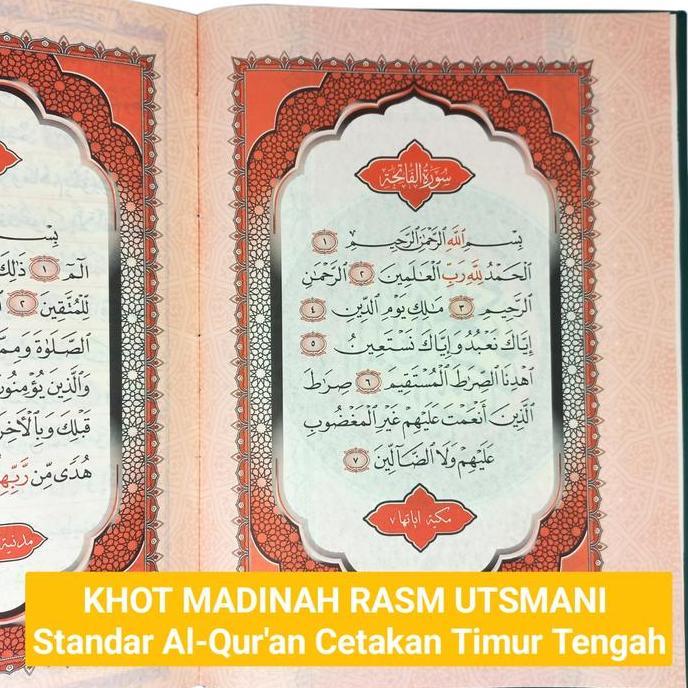 سورة الفاتحة
بِسْمِ ٱللَّهِ ٱلرَّحْمَٰنِ ٱلرَّحِيمِ ١
ٱلْحَمْدُ لِلَّهِ رَبِّ ٱلْعَٰلَمِينَ ٢ ٱلرَّحْمَٰنِ
ٱلرَّحِيمِ ٣ مَٰلِكِ يَوْمِ ٱلدِّينِ ٤
إِيَّاكَ نَعْبُدُ وَإِيَّاكَ نَسْتَعِينُ ٥
ٱهْدِنَا ٱلصِّرَٰطَ ٱلْمُسْتَقِيمَ ٦ صِرَٰطَ
ٱلَّذِينَ أَنْعَمْتَ عَلَيْهِمْ غَيْرِ ٱلْمَغْضُوبِ
عَلَيْهِمْ وَلَا ٱلضَّآلِّينَ ٧
مكية اياتها ٧
بِسْمِ
الٓمٓ ١ ذَٰلِكَ
لِّلْمُتَّقِينَ ٢
ٱلصَّلَوٰةَ وَمِمَّا
وَٱلَّذِينَ يُؤْمِنُونَ
قَبْلِكَ وَبِٱلْأَخِرَ
هُدًى مِّن رَّبِّهِ
مدنية
KHOT MADINAH RASM UTSMANI
Standar Al-Qur'an Cetakan Timur Tengah